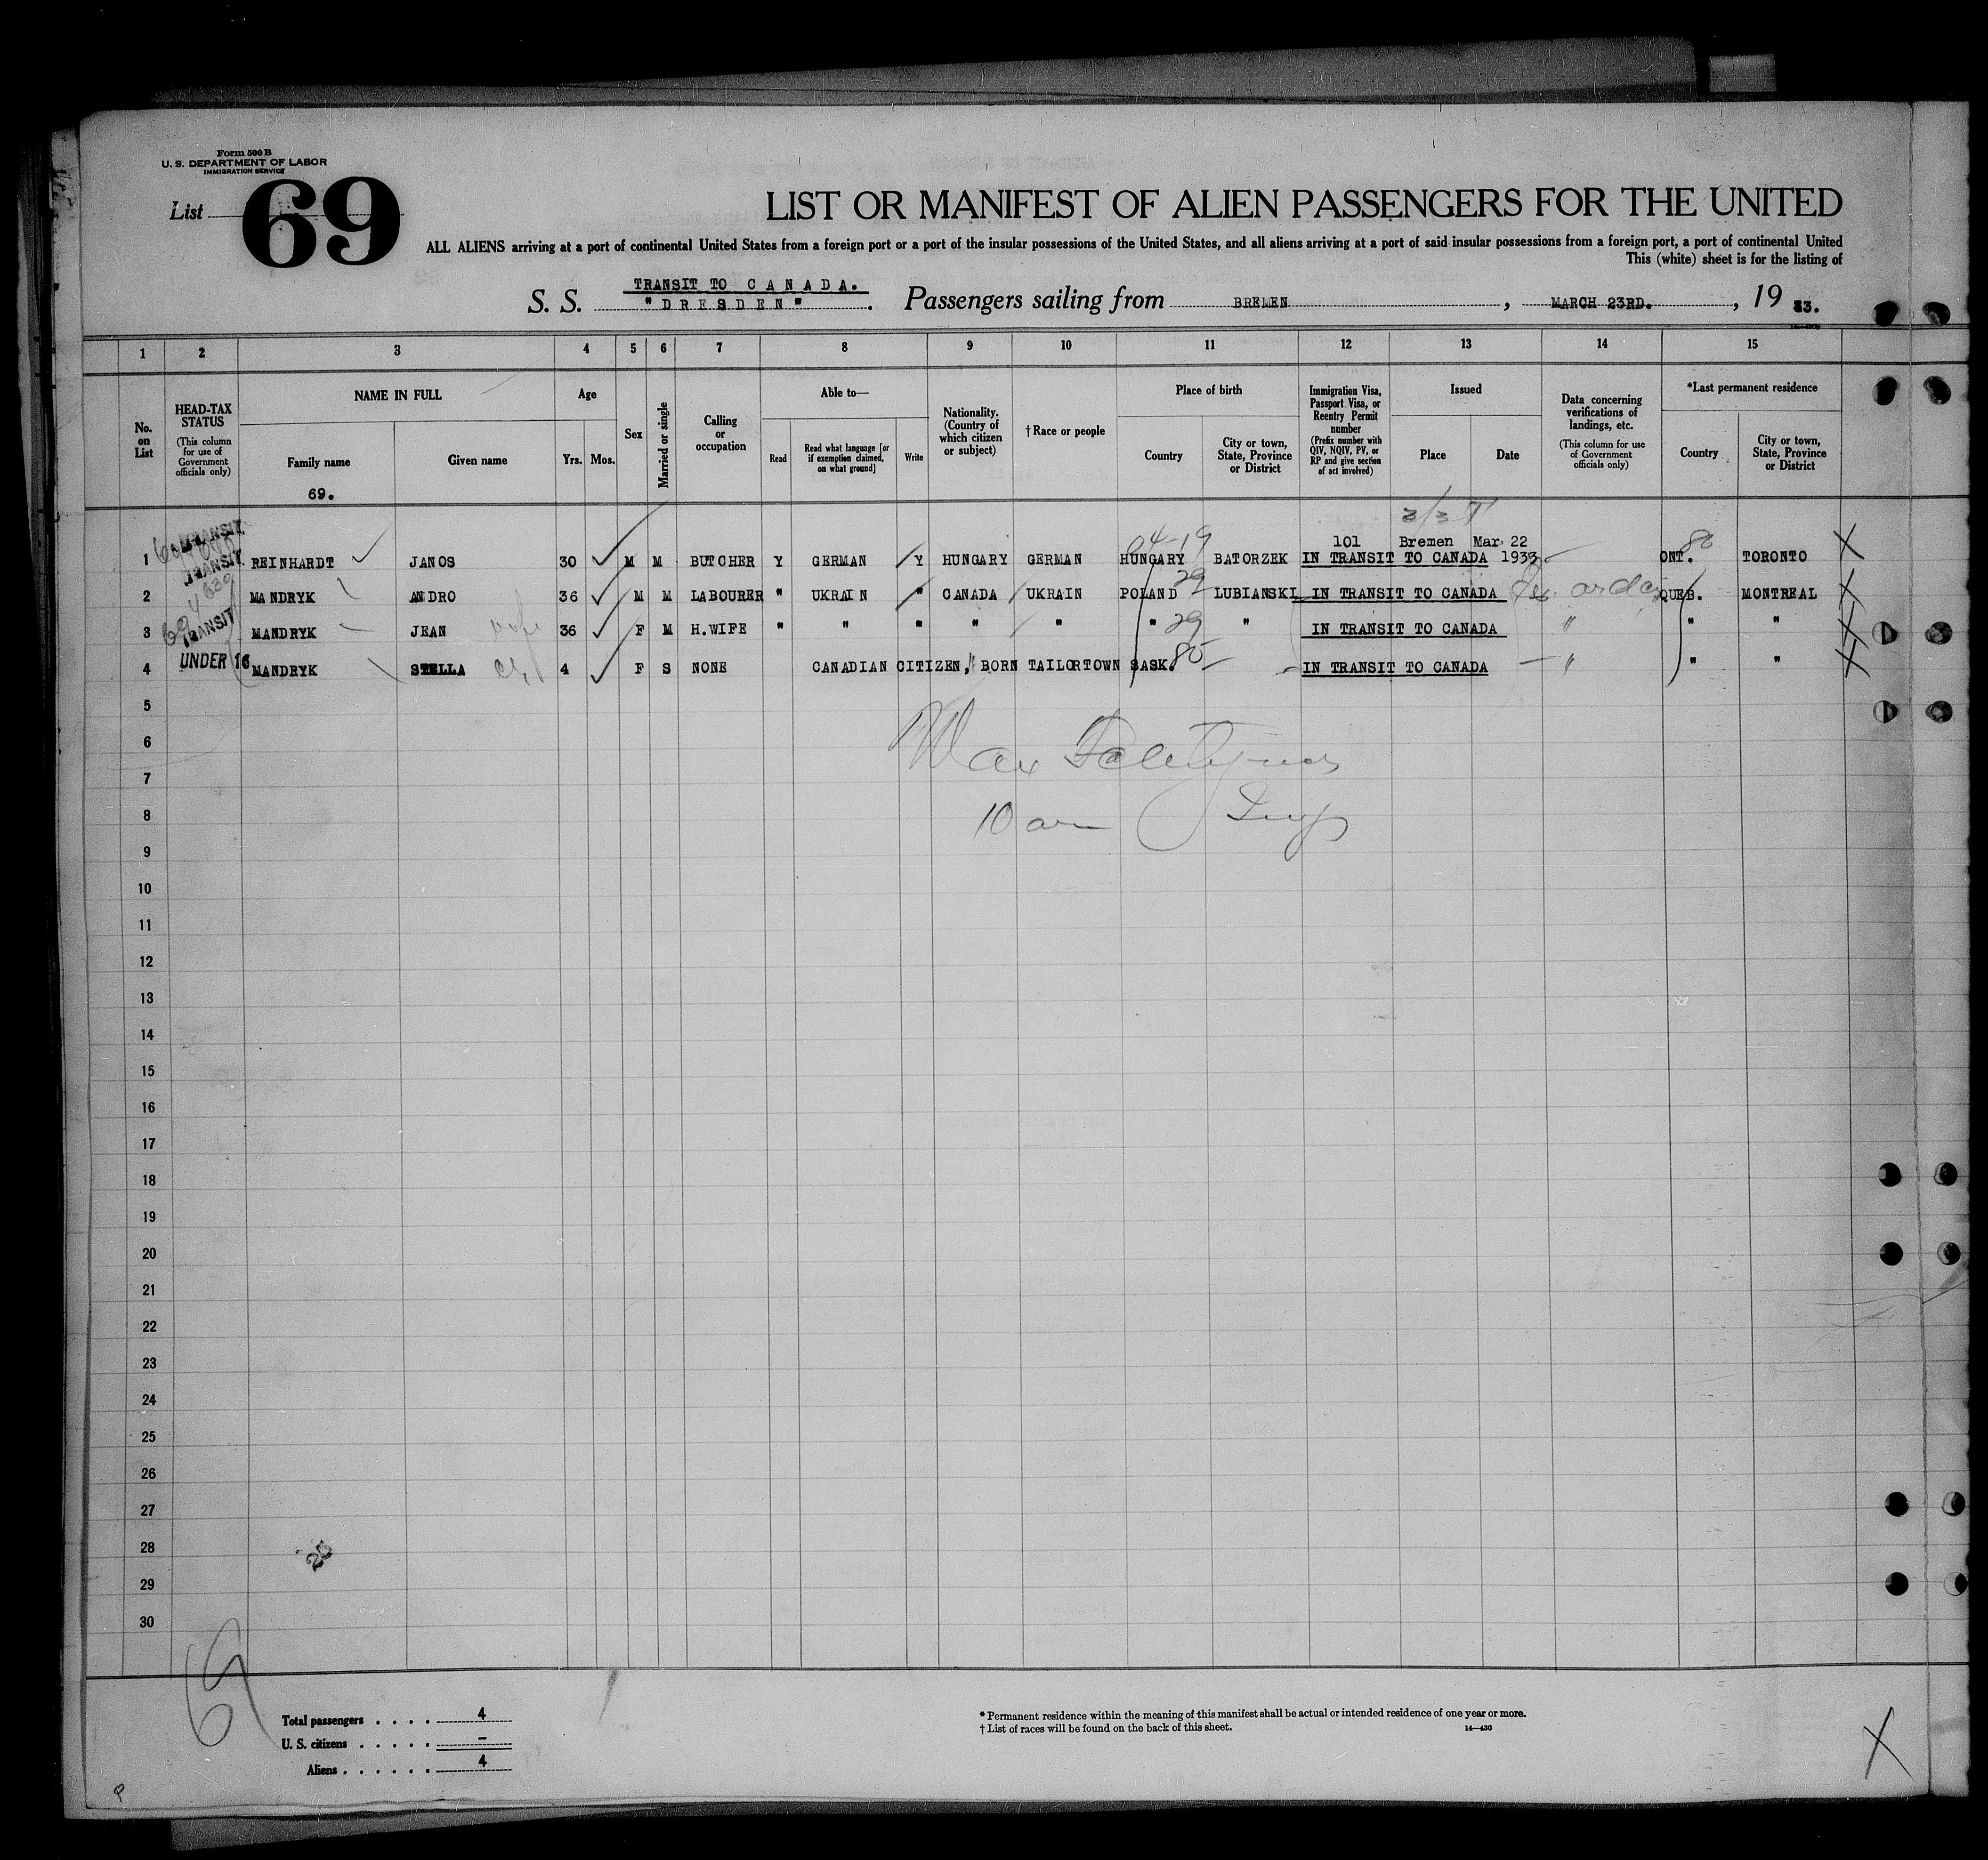 Form 500 B
U. S. DEPARTMENT OF LABOR
IMMIGRATION SERVICE
List 69
LIST OR MANIFEST OF ALIEN PASSENGERS FOR THE UNITED
ALL ALIENS arriving at a port of continental United States from a foreign port or a port of the insular possessions of the United States, and all aliens arriving at a port of said insular possessions from a foreign port, a port of continental United
This (white) sheet is for the listing of
TRANSIT TO CANADA.
S. S. "DRESDEN". Passengers sailing from BREMEN, MARCH 23RD., 19 33.
1 2 3 4 5 6 7 8 9 10 11 12 13 14 15
No. on List
HEAD-TAX STATUS (This column for use of Government officials only)
NAME IN FULL
Family name
Given name
69.
Age
Yrs. Mos.
Sex
Married or single
Calling or occupation
Able to—
Read
Read what language [or if exemption claimed, on what ground]
Write
Nationality. (Country of which citizen or subject)
† Race or people
Place of birth
Country
City or town, State, Province or District
Immigration Visa, Passport Visa, or Reentry Permit number (Prefix number with QIV, NQIV, PV, or RP and give section of act involved)
Issued
Place
Date
Data concerning verifications of landings, etc. (This column for use of Government officials only)
*Last permanent residence
Country
City or town, State, Province or District
04-19
101 Bremen Mar 22
80
1 TRANSIT REINHARDT JANOS 30 M M BUTCHER Y GERMAN Y HUNGARY GERMAN HUNGARY BATORZEK IN TRANSIT TO CANADA 1933 ONT. TORONTO X
2 TRANSIT MANDRYK ANDRO 36 M M LABOURER " UKRAIN " CANADA UKRAIN POLAND 29 LUBIANSKI IN TRANSIT TO CANADA QUEB. MONTREAL X
3 TRANSIT MANDRYK JEAN wife 36 F M H.WIFE " " " " " " 29 " IN TRANSIT TO CANADA " " " X
4 UNDER 16 MANDRYK STELLA ch 4 F S NONE CANADIAN CITIZEN, BORN TAILORTOWN SASK. 80 IN TRANSIT TO CANADA " " " X
5
6
7
8
10 am
9
10
11
12
13
14
15
16
17
18
19
20
21
22
23
24
25
26
27
28
29
30
69
Total passengers . . . . 4
U. S. citizens . . . . . –
Aliens . . . . . . 4
* Permanent residence within the meaning of this manifest shall be actual or intended residence of one year or more.
† List of races will be found on the back of this sheet. 14—430
X